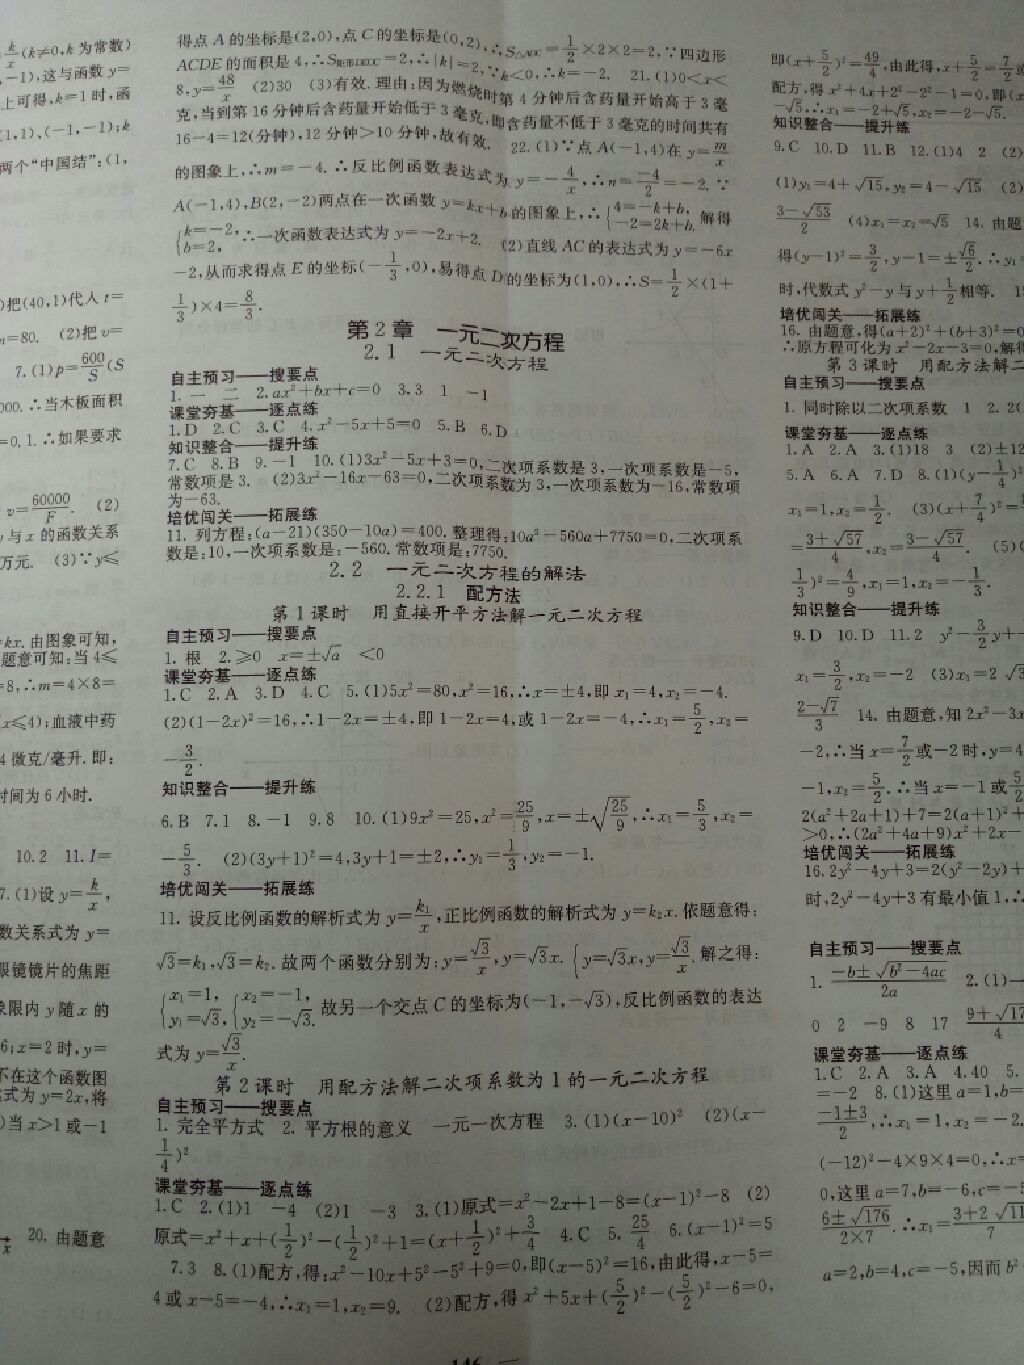 k/x(k≠0,k为常数)
-1),这与函数y=
上可得,k=1时,函
(1,1)、(-1,-1);k
两个“中国结”:(1,
)把(40,1)代入t=
=80. (2)把v=
7.(1)p=600/S(S
000.∴当木板面积
=0.1.∴如果要求
v=60000/F. (2)
y与x的函数关系
万元. (3)∵y≤
=kx.由图象可知,
题意可知:当4≤
=8,∴m=4×8=
(x≤4);血液中药
4微克/毫升.即:
时间为6小时.
10.2 11.I=
7.(1)设y=k/x,
数关系式为y=
眼镜镜片的焦距
象限内y随x的
6;x=2时,y=
不在这个函数图
式为y=2x,将
)当x>1或-1
20.由题意
得点A的坐标是(2,0),点C的坐标是(0,2),∴S△AOC=1/2×2×2=2,∵四边形
ACDE的面积是4,∴S矩形DEOC=2,∴|k|=2,∵k<0,∴k=-2. 21.(1)0<x<
8,y=48/x (2)30 (3)有效.理由:因为燃烧时第4分钟后含药量开始高于3毫
克,当到第16分钟后含药量开始低于3毫克,即含药量不低于3毫克的时间共有
16-4=12(分钟),12分钟>10分钟,故有效. 22.(1)∵点A(-1,4)在y=m/x
的图象上,∴m=-4.∴反比例函数表达式为y=-4/x,∴n=-4/2=-2.∵
A(-1,4),B(2,-2)两点在一次函数y=kx+b的图象上,∴{4=-k+b, -2=2k+b.解得
{k=-2, b=2,∴一次函数表达式为y=-2x+2. (2)直线AC的表达式为y=-6x
-2,从而求得点E的坐标(-1/3,0),易得点D的坐标为(1,0),∴S=1/2×(1+
1/3)×4=8/3.
第2章 一元二次方程
2.1 一元二次方程
自主预习——搜要点
1.一 二 2.ax²+bx+c=0 3.3 1 -1
课堂夯基——逐点练
1.D 2.C 3.C 4.x²-5x+5=0 5.B 6.D
知识整合——提升练
7.C 8.B 9.-1 10.(1)3x²-5x+3=0,二次项系数是3,一次项系数是-5,
常数项是3. (2)3x²-16x-63=0,二次项系数为3,一次项系数为-16,常数项
为-63.
培优闯关——拓展练
11.列方程:(a-21)(350-10a)=400.整理得:10a²-560a+7750=0,二次项系
数是:10,一次项系数是:-560.常数项是:7750.
2.2 一元二次方程的解法
2.2.1 配方法
第1课时 用直接开平方法解一元二次方程
自主预习——搜要点
1.根 2.≥0 x=±√a <0
课堂夯基——逐点练
1.C 2.A 3.D 4.C 5.(1)5x²=80,x²=16,∴x=±4,即x₁=4,x₂=-4.
(2)(1-2x)²=16,∴1-2x=±4,即1-2x=4,或1-2x=-4,∴x₁=5/2,x₂=
-3/2.
知识整合——提升练
6.B 7.1 8.-1 9.8 10.(1)9x²=25,x²=25/9,x=±√(25/9),∴x₁=5/3,x₂=
-5/3. (2)(3y+1)²=4,3y+1=±2,∴y₁=1/3,y₂=-1.
培优闯关——拓展练
11.设反比例函数的解析式为y=k₁/x,正比例函数的解析式为y=k₂x.依题意得:
√3=k₁,√3=k₂.故两个函数分别为:y=√3/x,y=√3x.{y=√3x,y=√3/x.解之得:
{x₁=1, y₁=√3,{x₂=-1, y₂=-√3.故另一个交点C的坐标为(-1,-√3),反比例函数的表达
式为y=√3/x.
第2课时 用配方法解二次项系数为1的一元二次方程
自主预习——搜要点
1.完全平方式 2.平方根的意义 一元一次方程 3.(1)(x-10)² (2)(x-
1/4)²
课堂夯基——逐点练
1.C 2.(1)1 -4 (2)1 -3 3.(1)原式=x²-2x+1-8=(x-1)²-8 (2)
原式=x²+x+(1/2)²-(1/2)²+1=(x+1/2)²+3/4 4.C 5.25/4 6.(x-1)²=5
7.3 8.(1)配方,得:x²-10x+5²-5²+9=0,即(x-5)²=16,由此得,x-5=
4或x-5=-4,∴x₁=1,x₂=9. (2)配方,得x²+5x+(5/2)²-(5/2)²-6=0,
146
即(x+5/2)²=49/4,由此得,x+5/2=7/2或
配方,得x²+4x+2²-2²-1=0,即(x
-√5.∴x₁=-2+√5,x₂=-2-√5.
知识整合——提升练
9.C 10.D 11.B 12.(1)4 2 (2)
(1)y₁=4+√15,y₂=4-√15 (2)
(3-√53)/2 (4)x₁=x₂=√5 14.由题
得(y-1)²=3/2,y-1=±√6/2,∴y₁
时,代数式y²-y与y+1/2相等.
培优闯关——拓展练
16.由题意,得(a+2)²+(b+3)²=0
∴原方程可化为x²-2x-3=0,解得
第3课时 用配方法解二
自主预习——搜要点
1.同时除以二次项系数 1 2.2(
课堂夯基——逐点练
1.A 2.A 3.(1)18 3 (2)±12
5.A 6.A 7.D 8.(1)(y-1/4)²
x₁=1,x₂=1/2. (3)(x+7/4)²=
=(3+√57)/4,x₂=(3-√57)/4. (5)
1/3)²=4/9,x₁=1,x₂=-1/3.
知识整合——提升练
9.D 10.D 11.2 y²-3/2y+
x₁=3/2,x₂=-2 (3)x₁=2√3
(2-√7)/3 14.由题意,知2x²-3x
-2,∴当x=7/2或-2时,y=4
-1,x₂=5/2.∴当x=-1或5/2
2(a²+2a+1)+7=2(a+1)²+
>0,∴(2a²+4a+9)x²+2x-
培优闯关——拓展练
16.2y²-4y+3=2(y²-2y)+
时,2y²-4y+3有最小值1,∴
自主预习——搜要点
1.(-b±√(b²-4ac))/2a 2.(1)-
0 2 -9 8 17 (9+√17)/4
课堂夯基——逐点练
1.C 2.A 3.A 4.40 5.
=-2 8.(1)这里a=1,b=
(-1±3)/2,∴x₁=1,x₂=-2.
(-12)²-4×9×4=0,∴x=
0,这里a=7,b=-6,c=-5
(6±√176)/(2×7).∴x₁=(3+2√11)/7
a=2,b=4,c=-5,因而b²